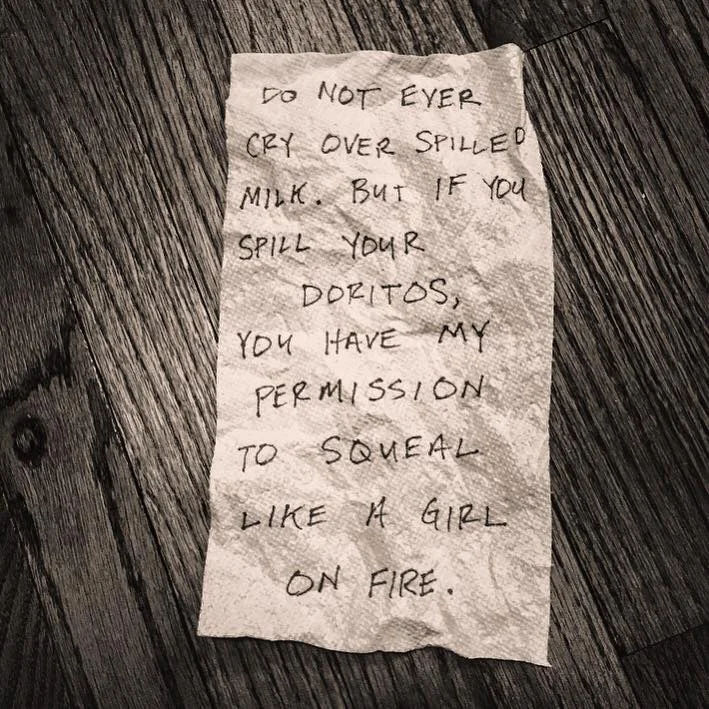 DO NOT EVER
CRY OVER SPILLED
MILK. BUT IF YOU
SPILL YOUR
DORITOS,
YOU HAVE MY
PERMISSION
TO SQUEAL
LIKE A GIRL
ON FIRE.